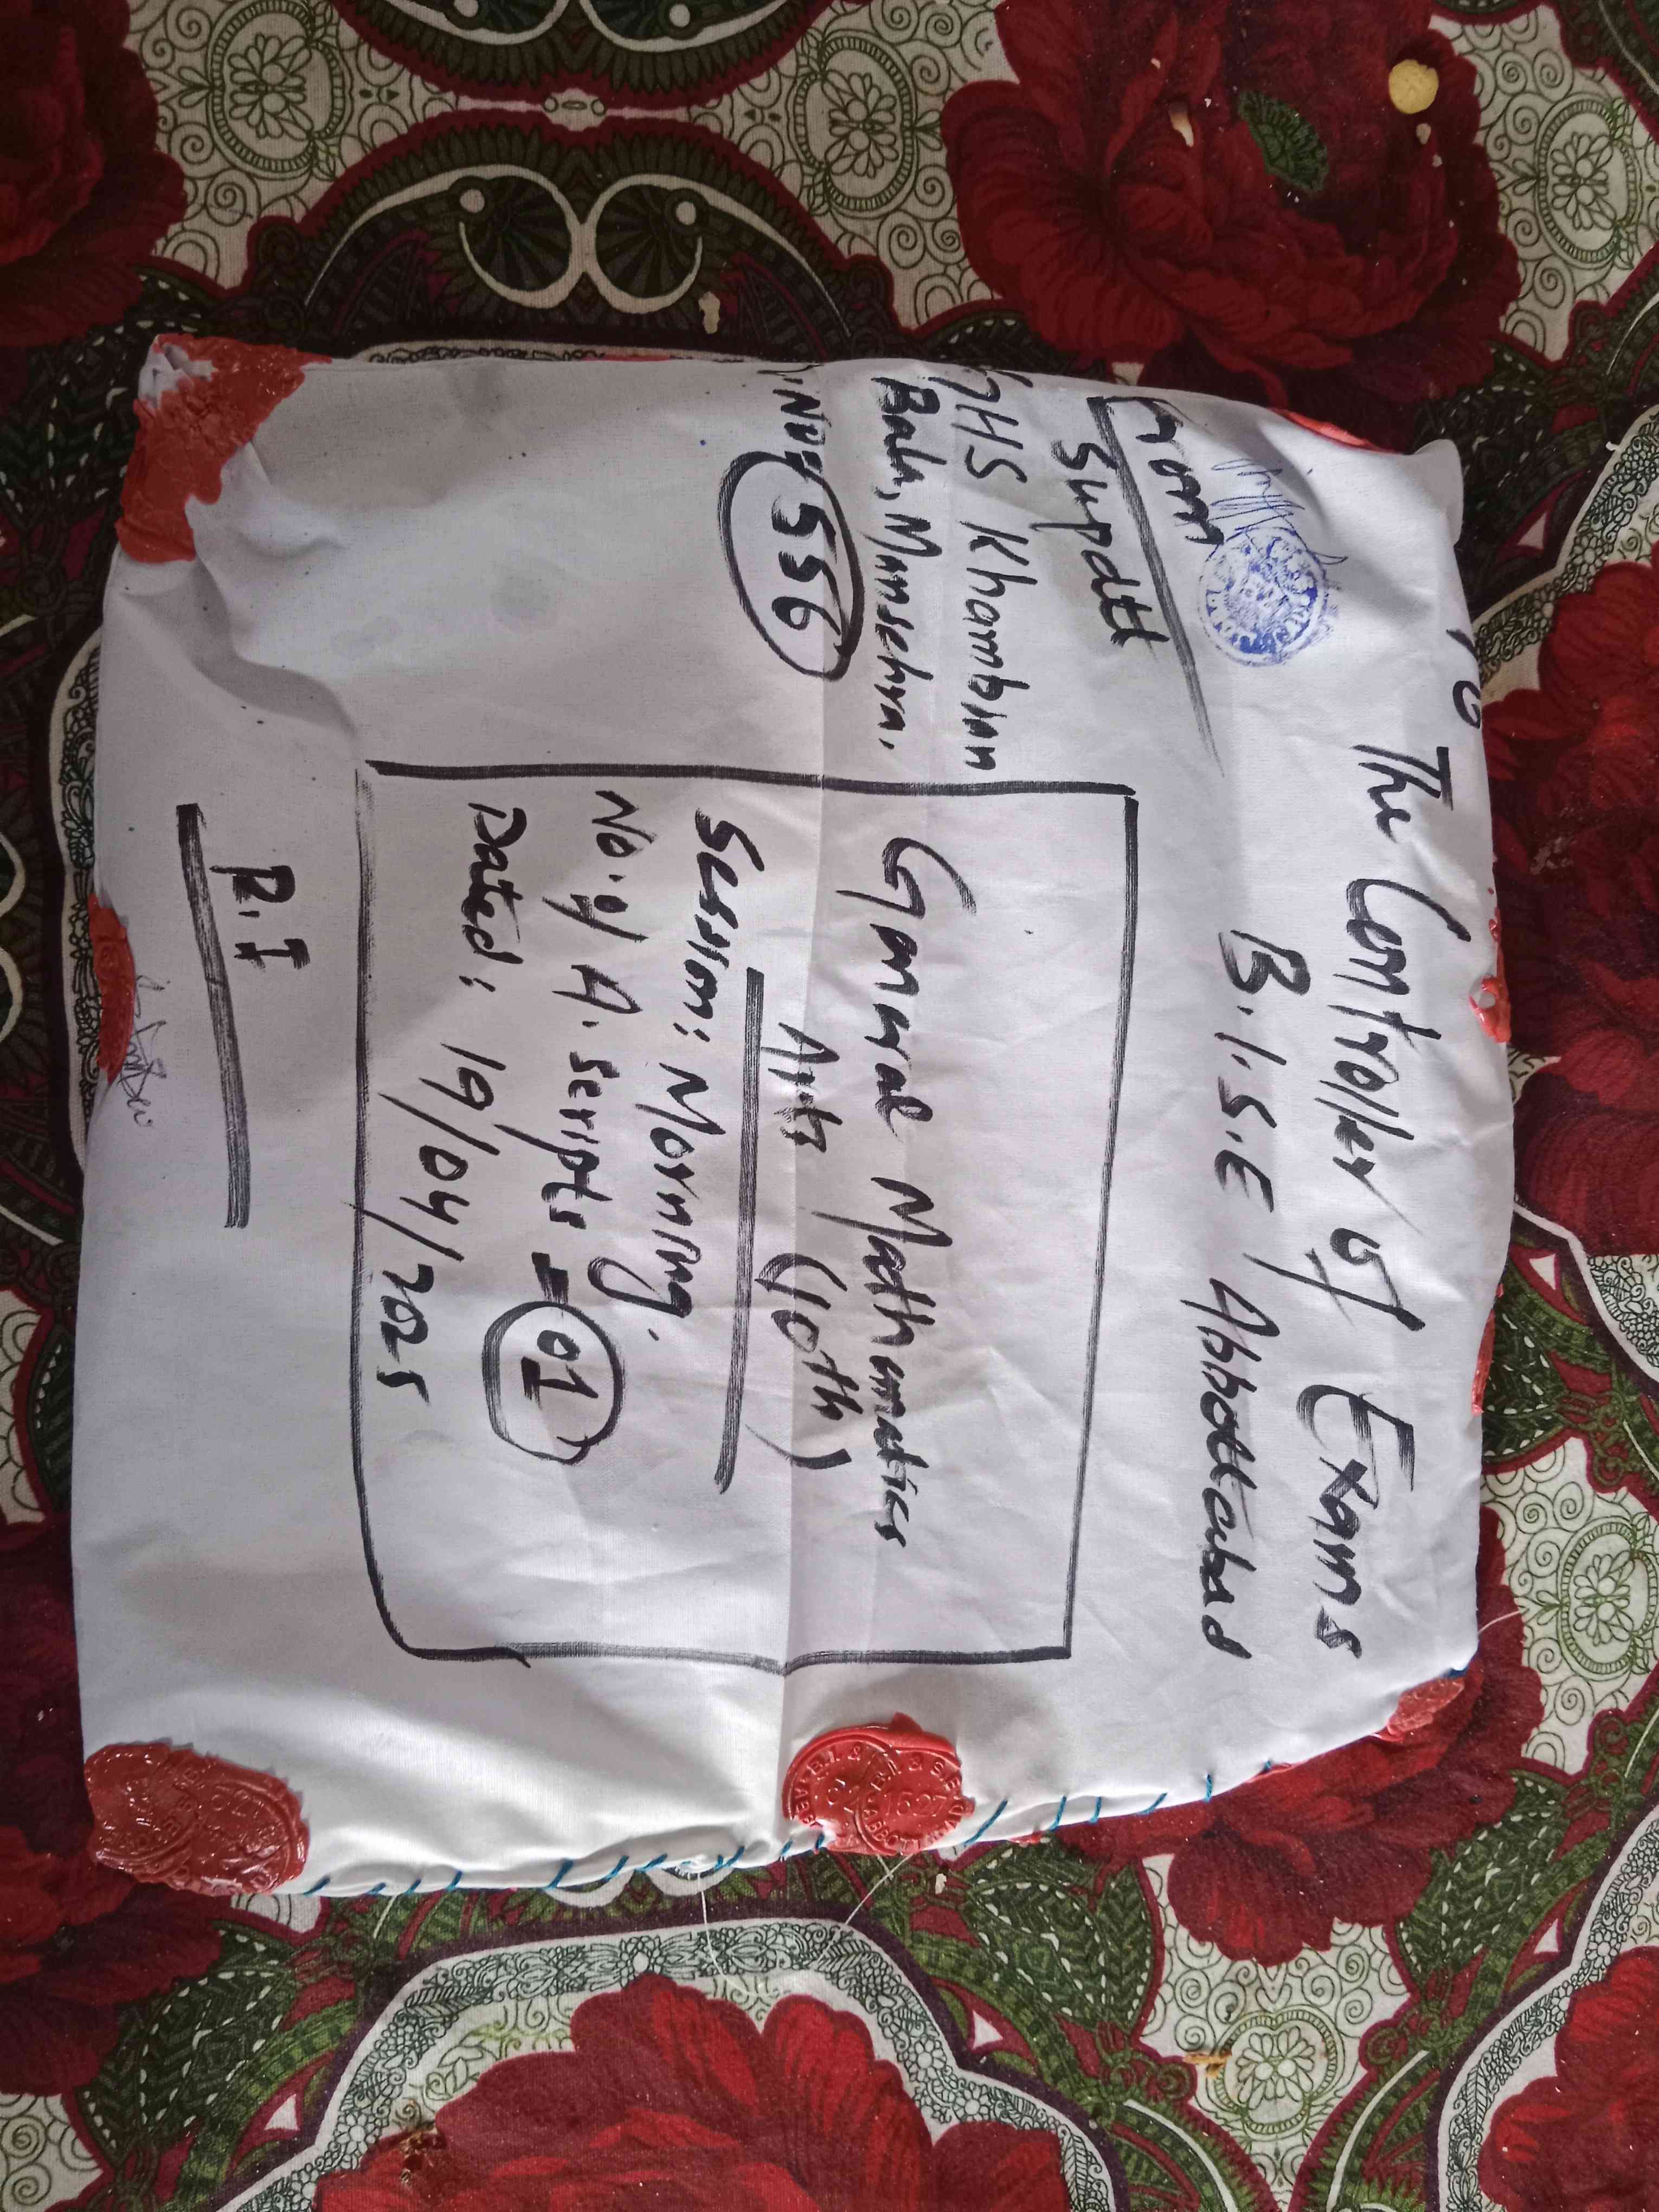 To
The Controller of Exams
B.I.S.E Abbottabad
From
Supdtt
GHS Khambian
Bala, Mansehra.
No: 556
General Mathematics
Arts (10th)
Session: Morning.
No. of A. Scripts = 01
Dated: 19/04/2025
P.I